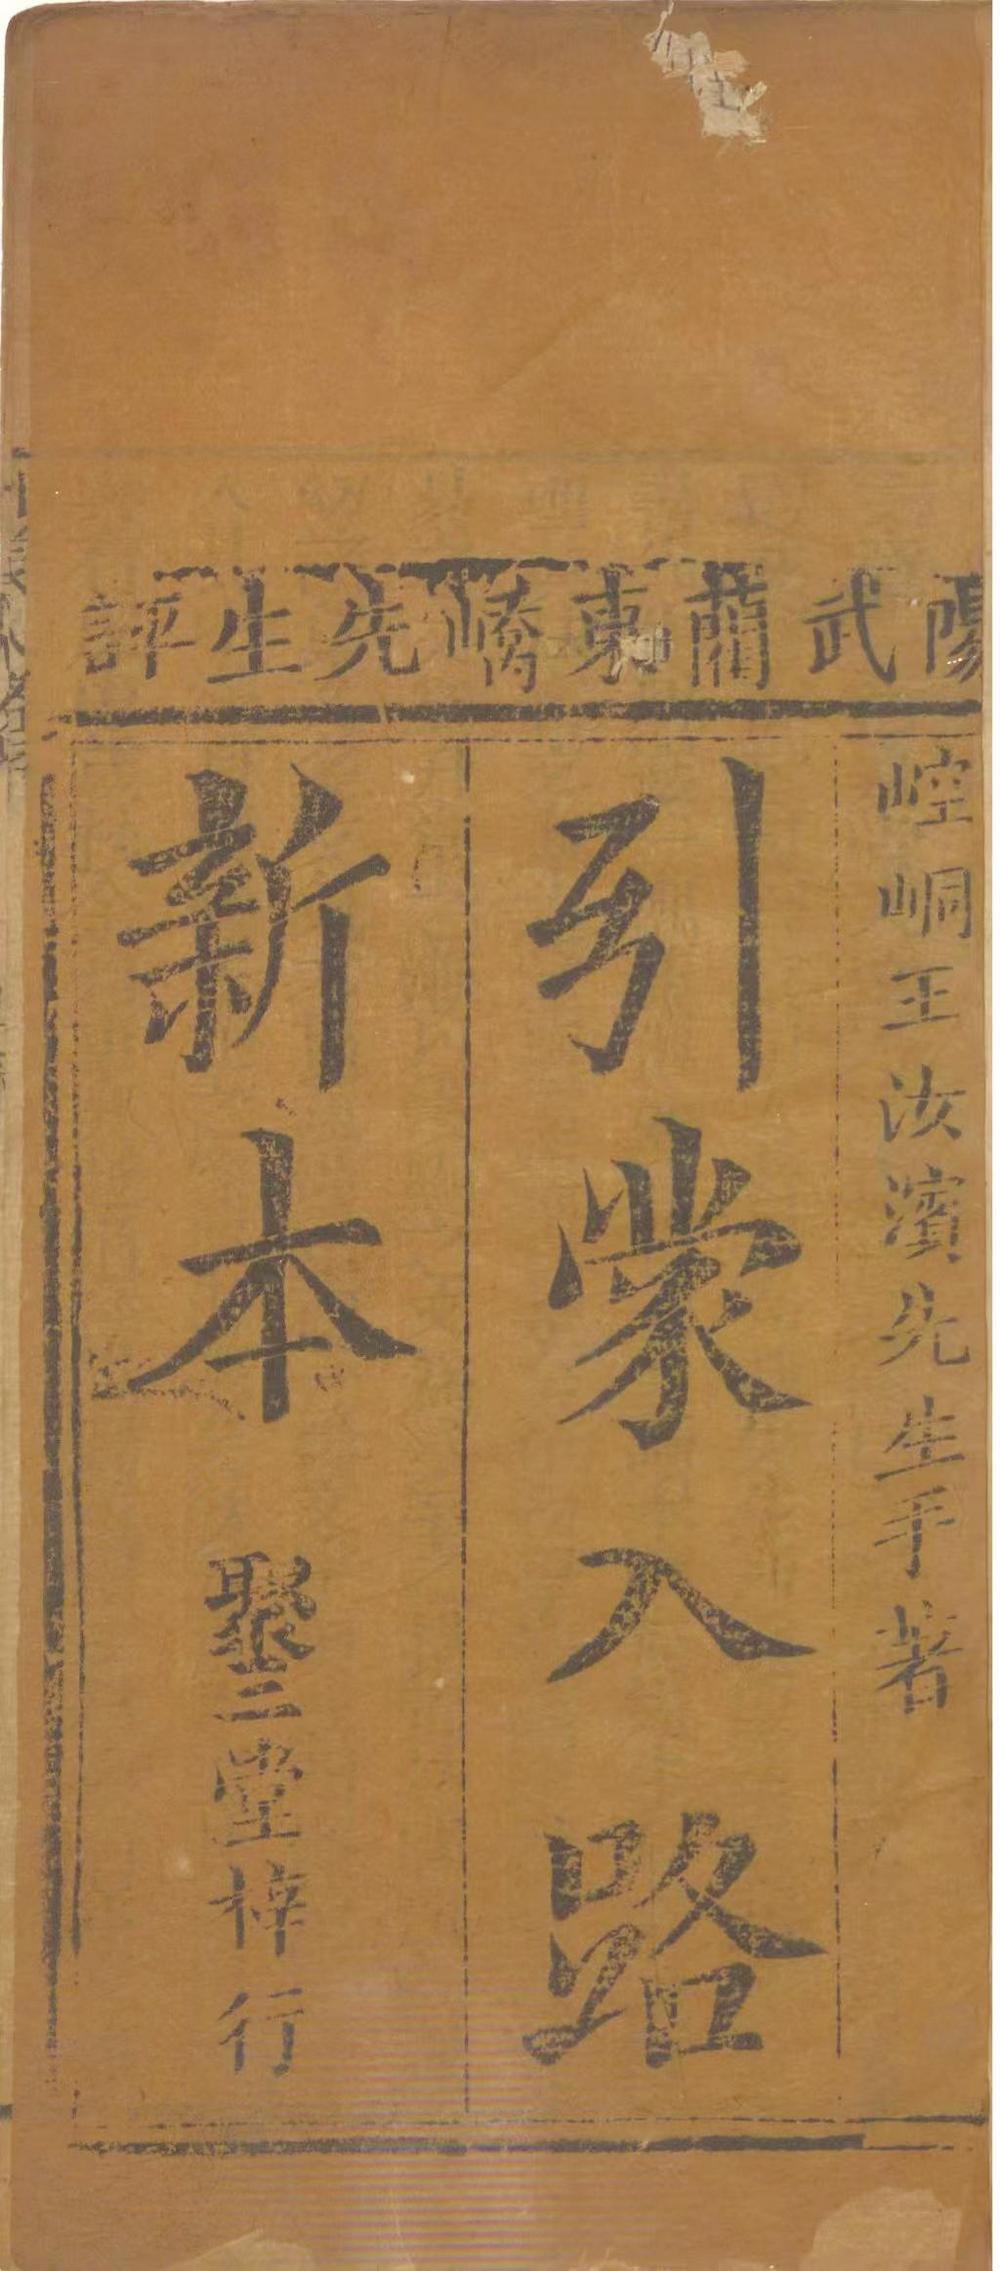 陽武藺東嶠先生評
崆峒王汝濱先生手著
引蒙入路
新本
聚三堂梓行